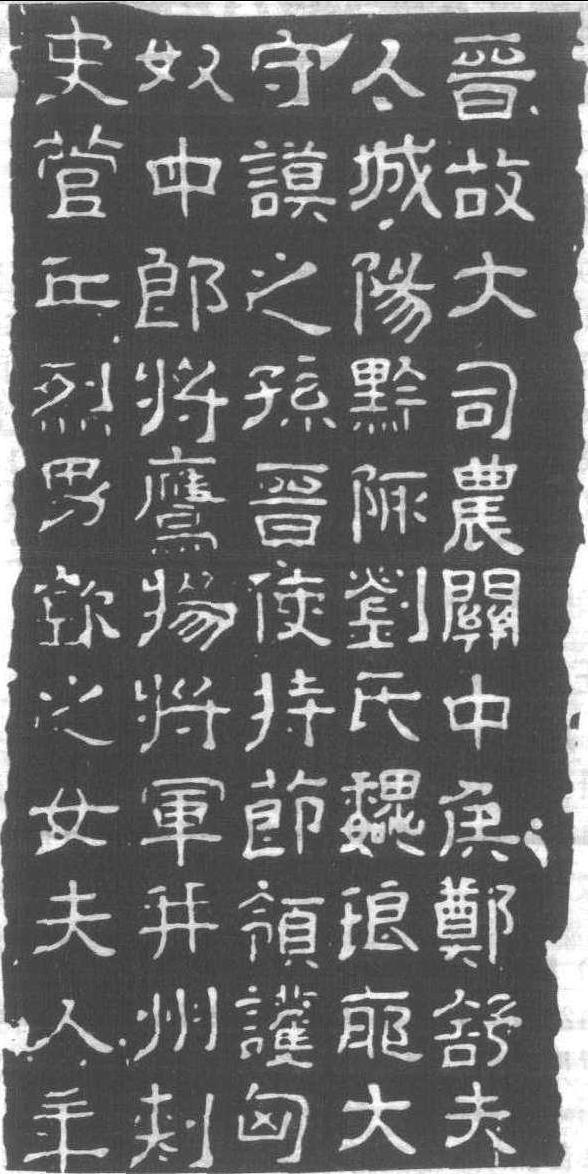 晉故大司農關中侯鄭舒夫
人城陽黔陬劉氏魏琅耶大
守謨之孫晉使持節領護匈
奴中郎將鷹揚將軍并州刺
史菅丘烈男欽之女夫人年